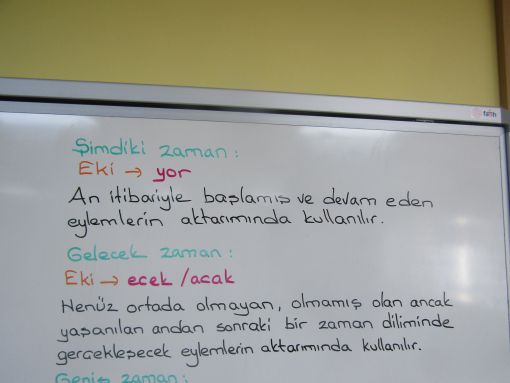 fatih
Şimdiki zaman:
Eki → yor
An itibariyle başlamış ve devam eden
eylemlerin aktarımında kullanılır.
Gelecek zaman:
Eki → ecek /acak
Henüz ortada olmayan, olmamış olan ancak
yaşanılan andan sonraki bir zaman diliminde
gerçekleşecek eylemlerin aktarımında kullanılır.
Geniş zaman: